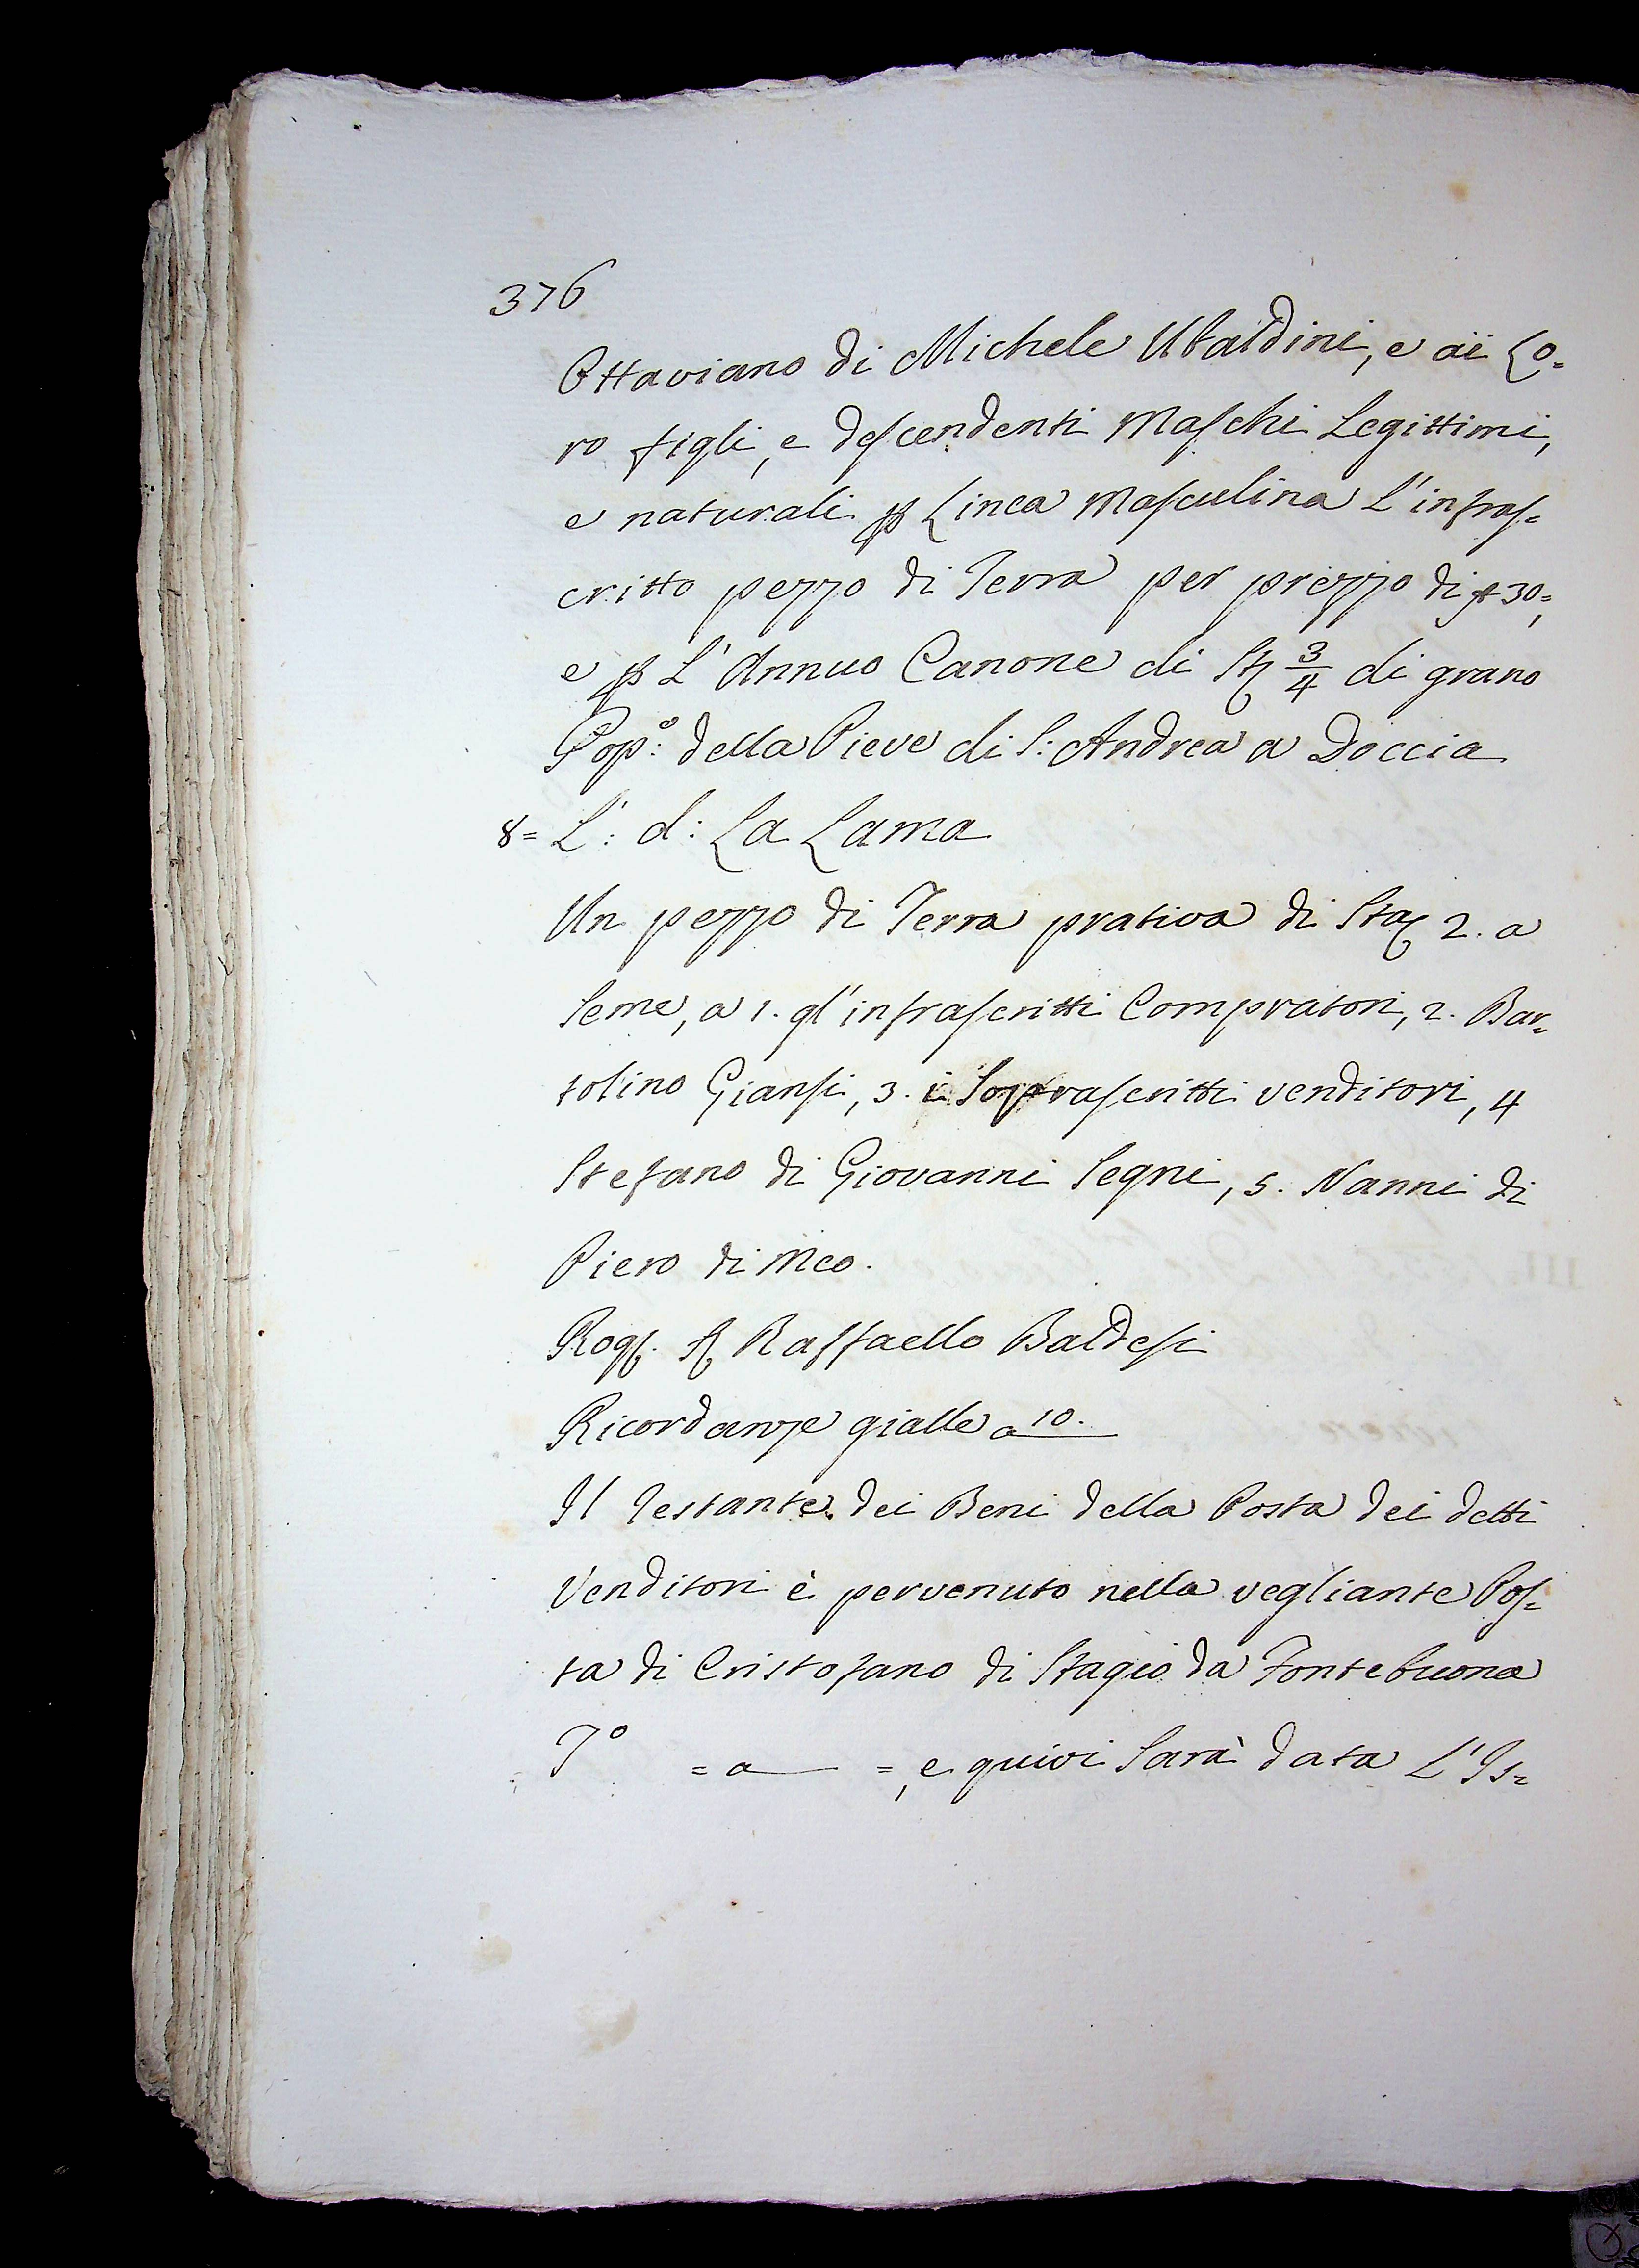 376
Ottaviano di Michele Ubaldini, e ai Lo=
ro figli, e descendenti Maschi Legittimi,
e naturali p Linea Masculina L'infras=
critto pezzo di Terra per prezzo di f 30=,
e p L'Annuo Canone di St 3/4 di grano
Pop.o della Pieve di S: Andrea a Doccia
8= L: d: La Lama
Un pezzo di Terra prativa di Sta 2. a
Seme, a 1. gl'infrascritti Compratori, 2. Bar=
tolino Giansi, 3. i Soprascritti venditori, 4
Stefano di Giovanni Segni, 5. Nanni di
Piero di Meo.
Rog. S Raffaello Baldesi
Ricordanze gialle a 10.
Il restante dei Beni della Posta dei detti
Venditori è pervenuto nella vegliante Pos=
ta di Cristofano di Stagio da Fontebuona
T.o = a =, e quivi Sarà data L'Is=